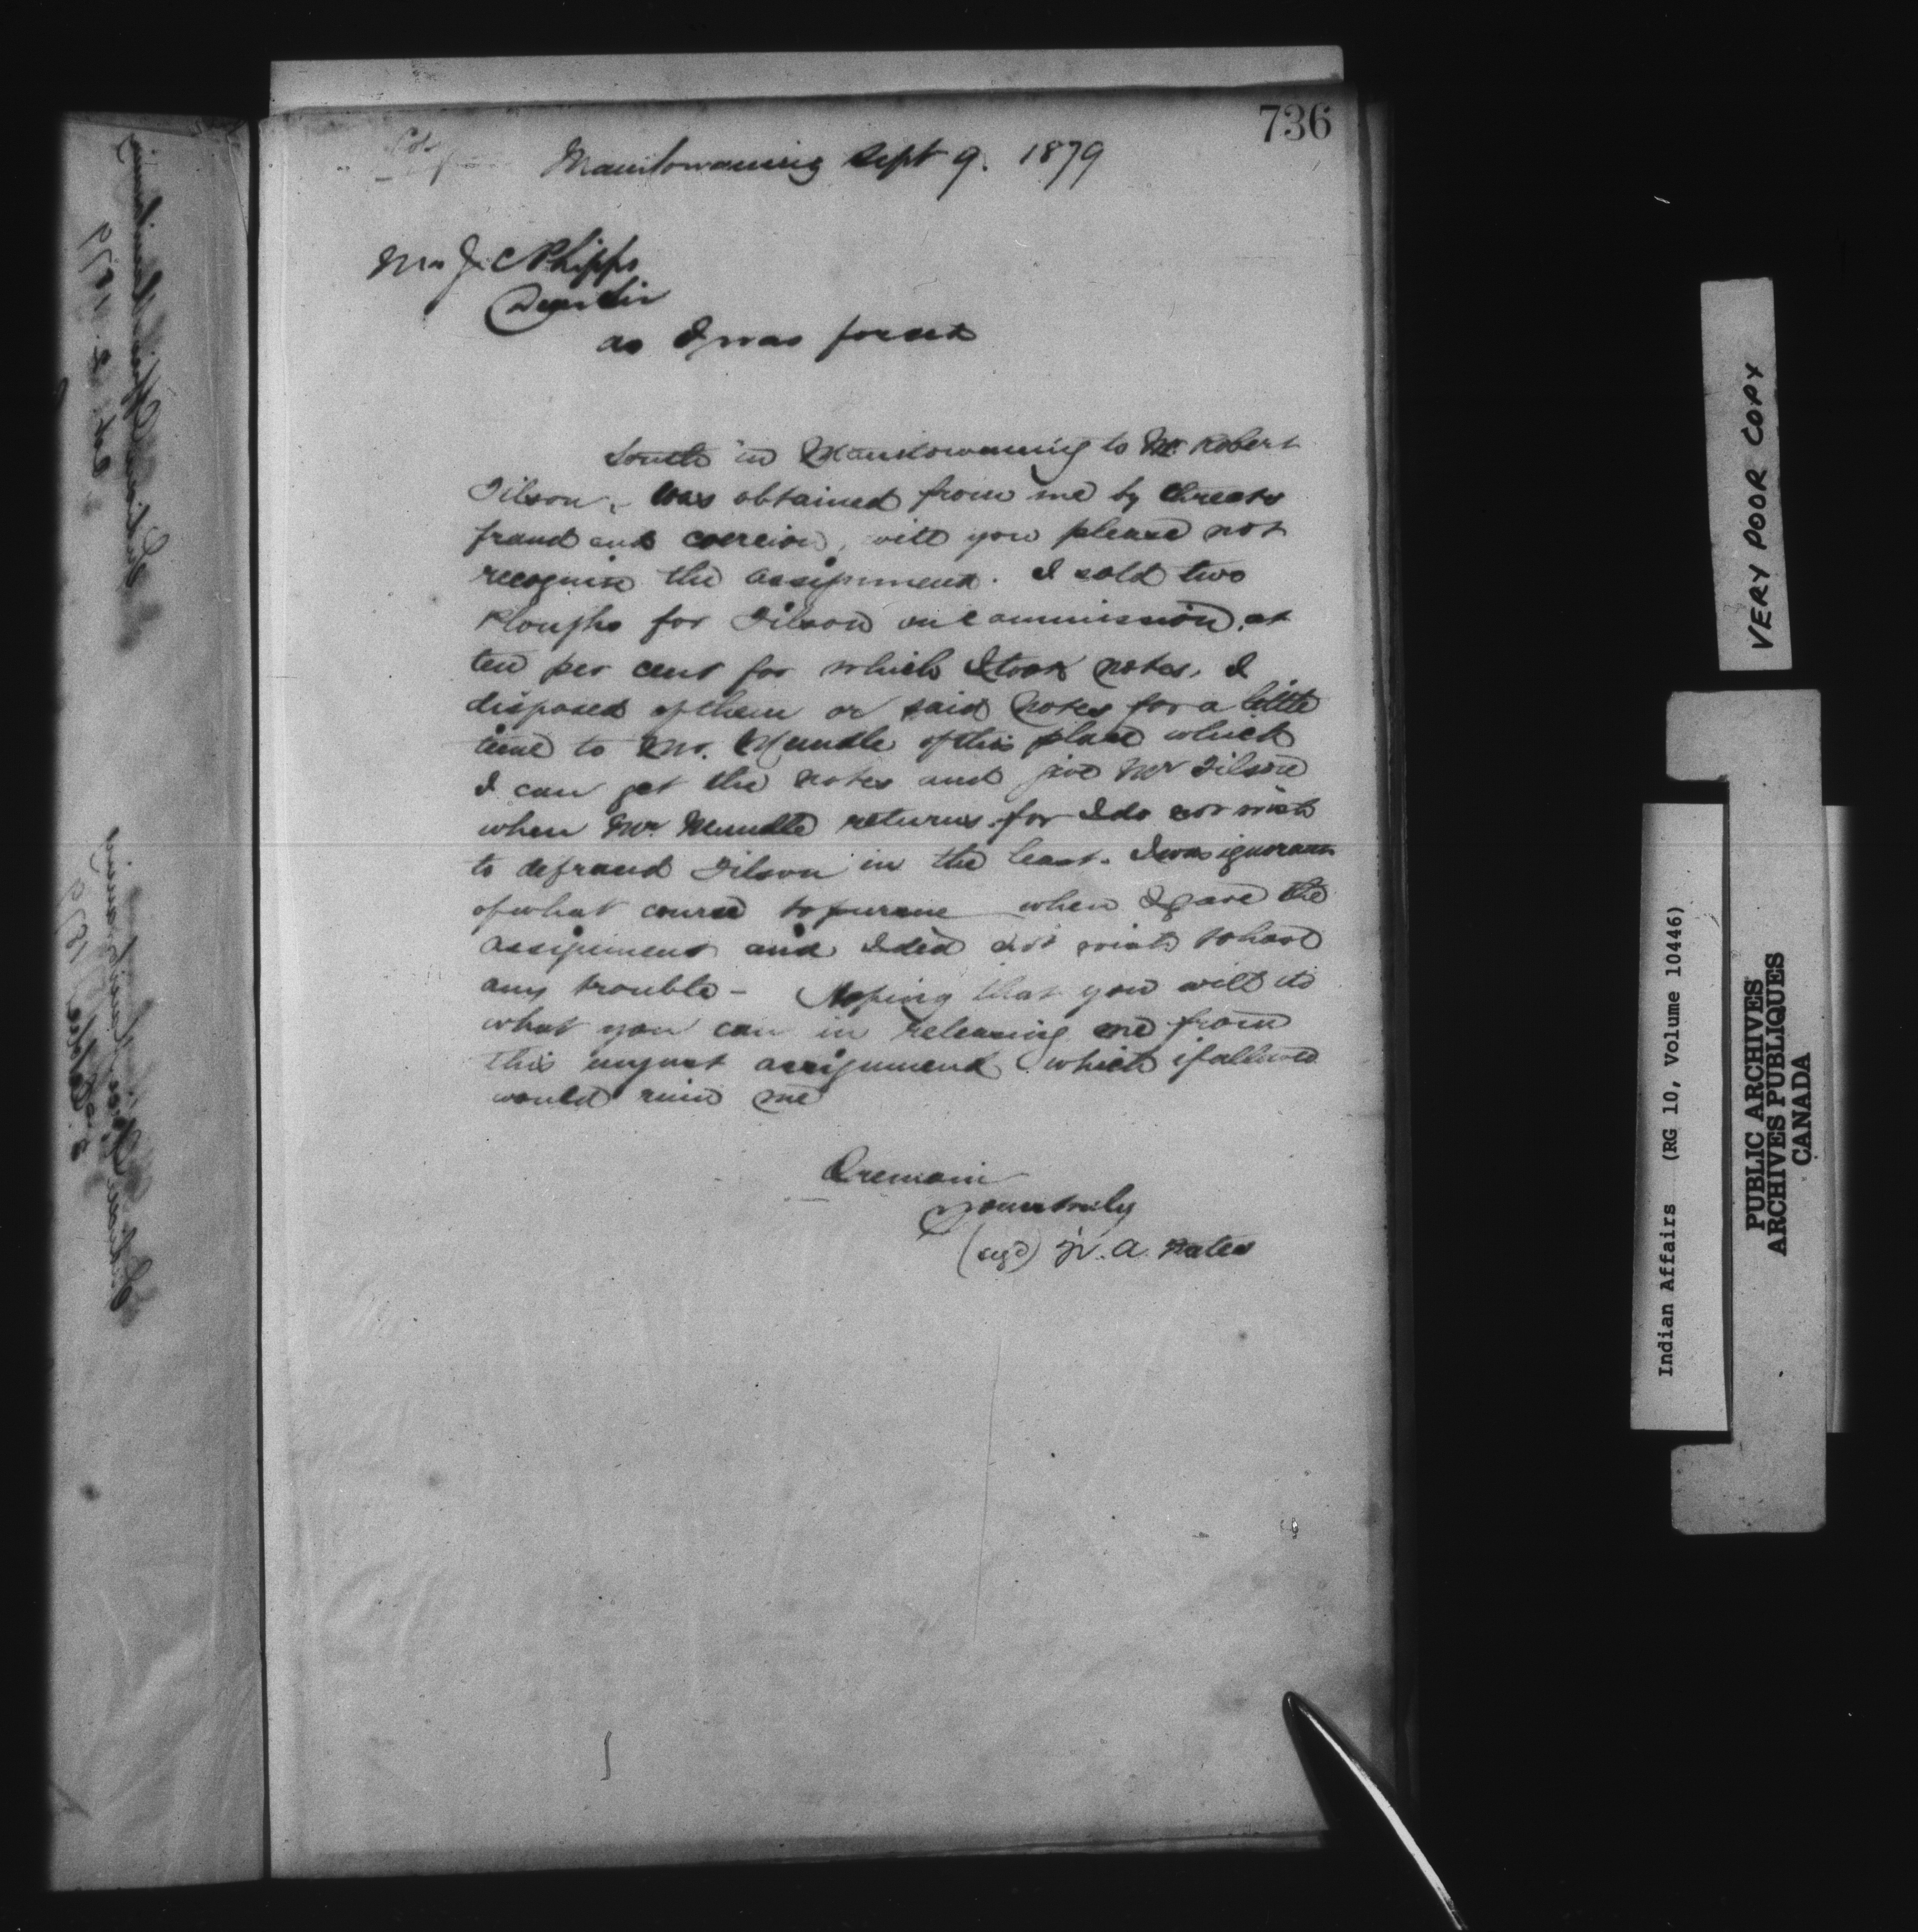 736
Manitowaning Sept 9. 1879
Mr J. C Phipps
Dear Sir
as I was forced
South in Manitowaning to Mr. Robert
Tilson, was obtained from me by threats
fraud and coercion, will you please not
recognize the assignment. I sold two
Ploughs for Tilson on commission, at
ten per cent for which I took notes, I
disposed of them or said notes for a little
time to Mr. Mundle of this place which
I can get the notes and give Mr Tilson
when Mr Mundle returns, for I do not wish
to defraud Tilson in the least. I was ignorant
of what course to pursue when I gave the
assignment and I did not wish to have
any trouble - Hoping that you will do
what you can in releasing me from
this unjust assignment which if allowed
would ruin me
I remain
yours truly
(sigd) W. A. Yates
VERY POOR COPY
Indian Affairs (RG 10, Volume 10446)
PUBLIC ARCHIVES
ARCHIVES PUBLIQUES
CANADA